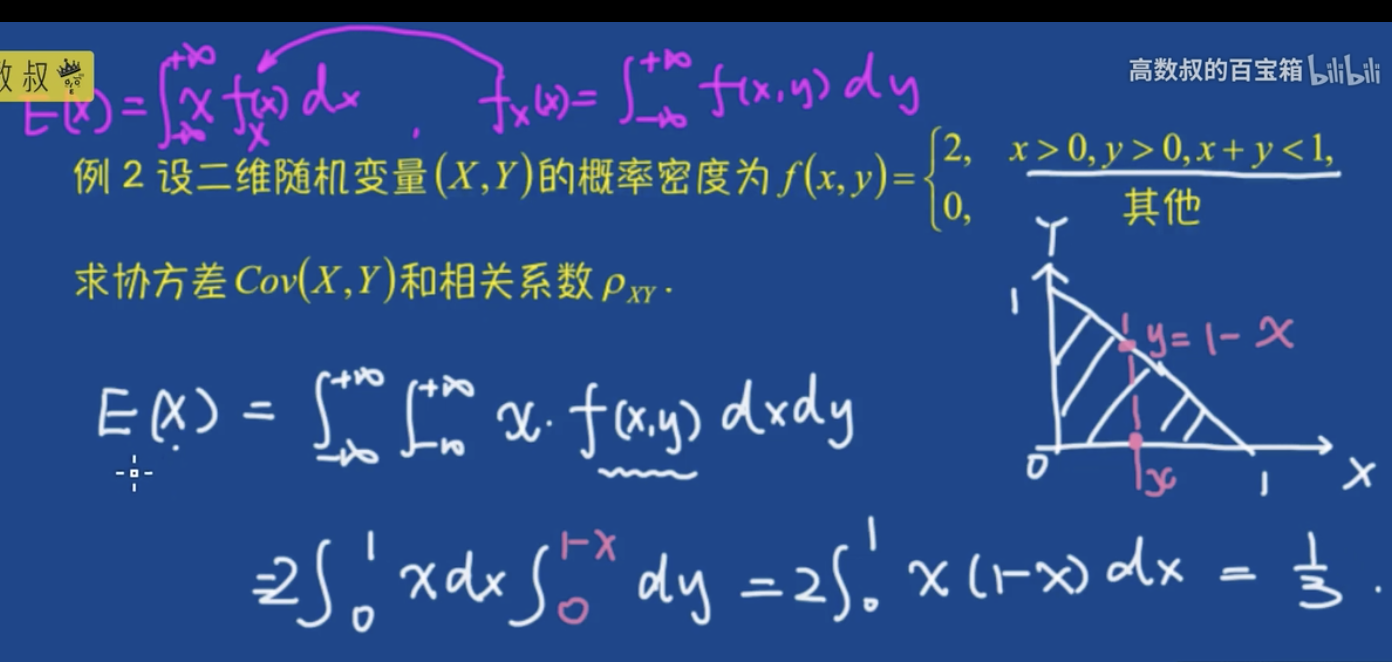 数叔
高数叔的百宝箱 bilibili
E(X)=∫_{-∞}^{+∞} x f_X(x) dx , f_X(x)=∫_{-∞}^{+∞} f(x,y) dy
例 2 设二维随机变量(X,Y)的概率密度为 f(x,y)={2, x>0,y>0,x+y<1,
0, 其他
求协方差Cov(X,Y)和相关系数 ρ_{XY}.
Y
1
y=1-x
E(X) = ∫_{-∞}^{+∞} ∫_{-∞}^{+∞} x·f(x,y) dxdy
0 x 1 X
=2∫_0^1 xdx ∫_0^{1-x} dy = 2∫_0^1 x(1-x)dx = 1/3.